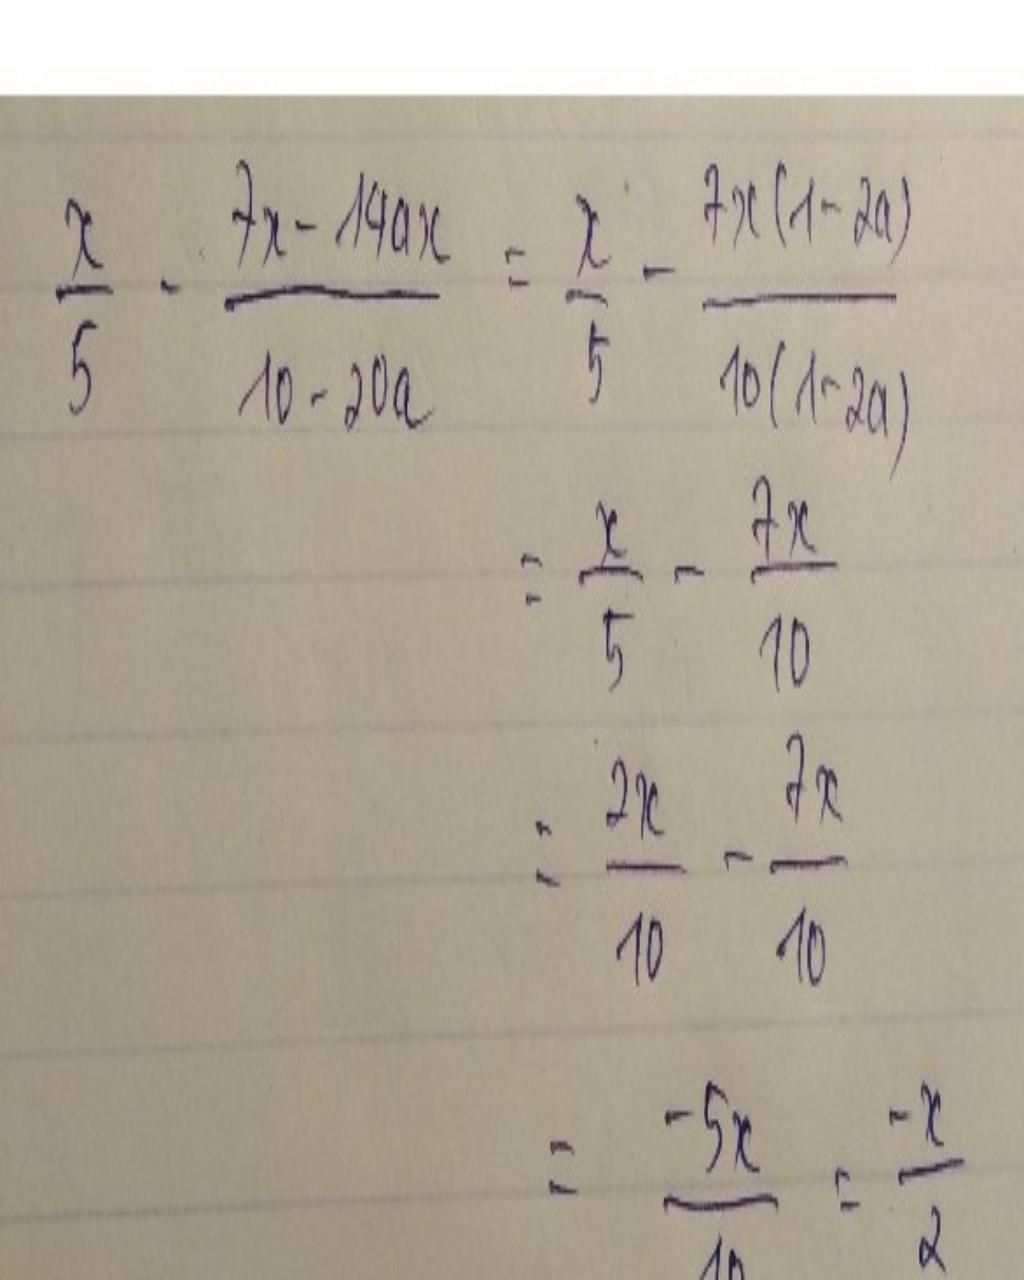 x/5 - (7x - 14ax)/(10 - 20a) = x/5 - 7x(1 - 2a)/10(1 - 2a)
= x/5 - 7x/10
= 2x/10 - 7x/10
= -5x/10 = -x/2